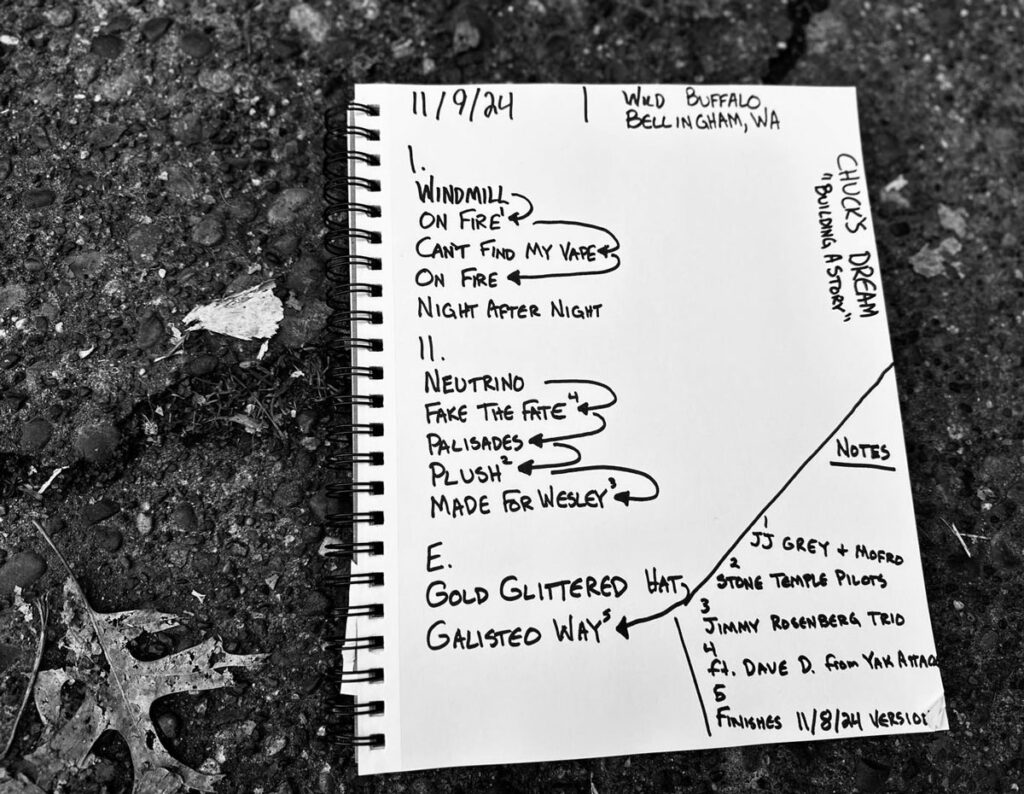 11/9/24 | WILD BUFFALO
BELLINGHAM, WA
CHUCK'S DREAM
"BUILDING A STORY"
I.
WINDMILL
ON FIRE¹
CAN'T FIND MY VAPE
ON FIRE
NIGHT AFTER NIGHT
II.
NEUTRINO
FAKE THE FATE⁴
PALISADES
PLUSH²
MADE FOR WESLEY³
E.
GOLD GLITTERED HAT
GALISTEO WAY⁵
NOTES
1
JJ GREY + MOFRO
2
STONE TEMPLE PILOTS
3
JIMMY ROSENBERG TRIO
4
ft. DAVE D. from YAK ATTACK
5
FINISHES 11/8/24 VERSION